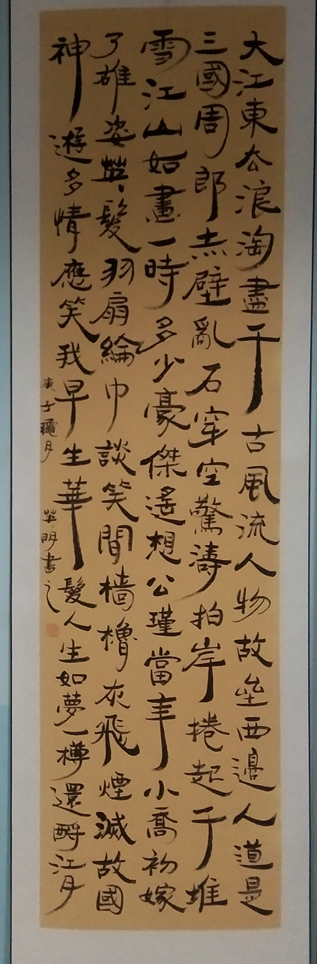 大江東去浪淘盡千古風流人物故壘西邊人道是
三國周郎赤壁亂石穿空驚濤拍岸捲起千堆
雪江山如畫一時多少豪傑遙想公瑾當年小喬初嫁
了雄姿英髮羽扇綸巾談笑間檣櫓灰飛煙滅故國
神遊多情應笑我早生華髮人生如夢一樽還酹江月
庚子穐月英明書之